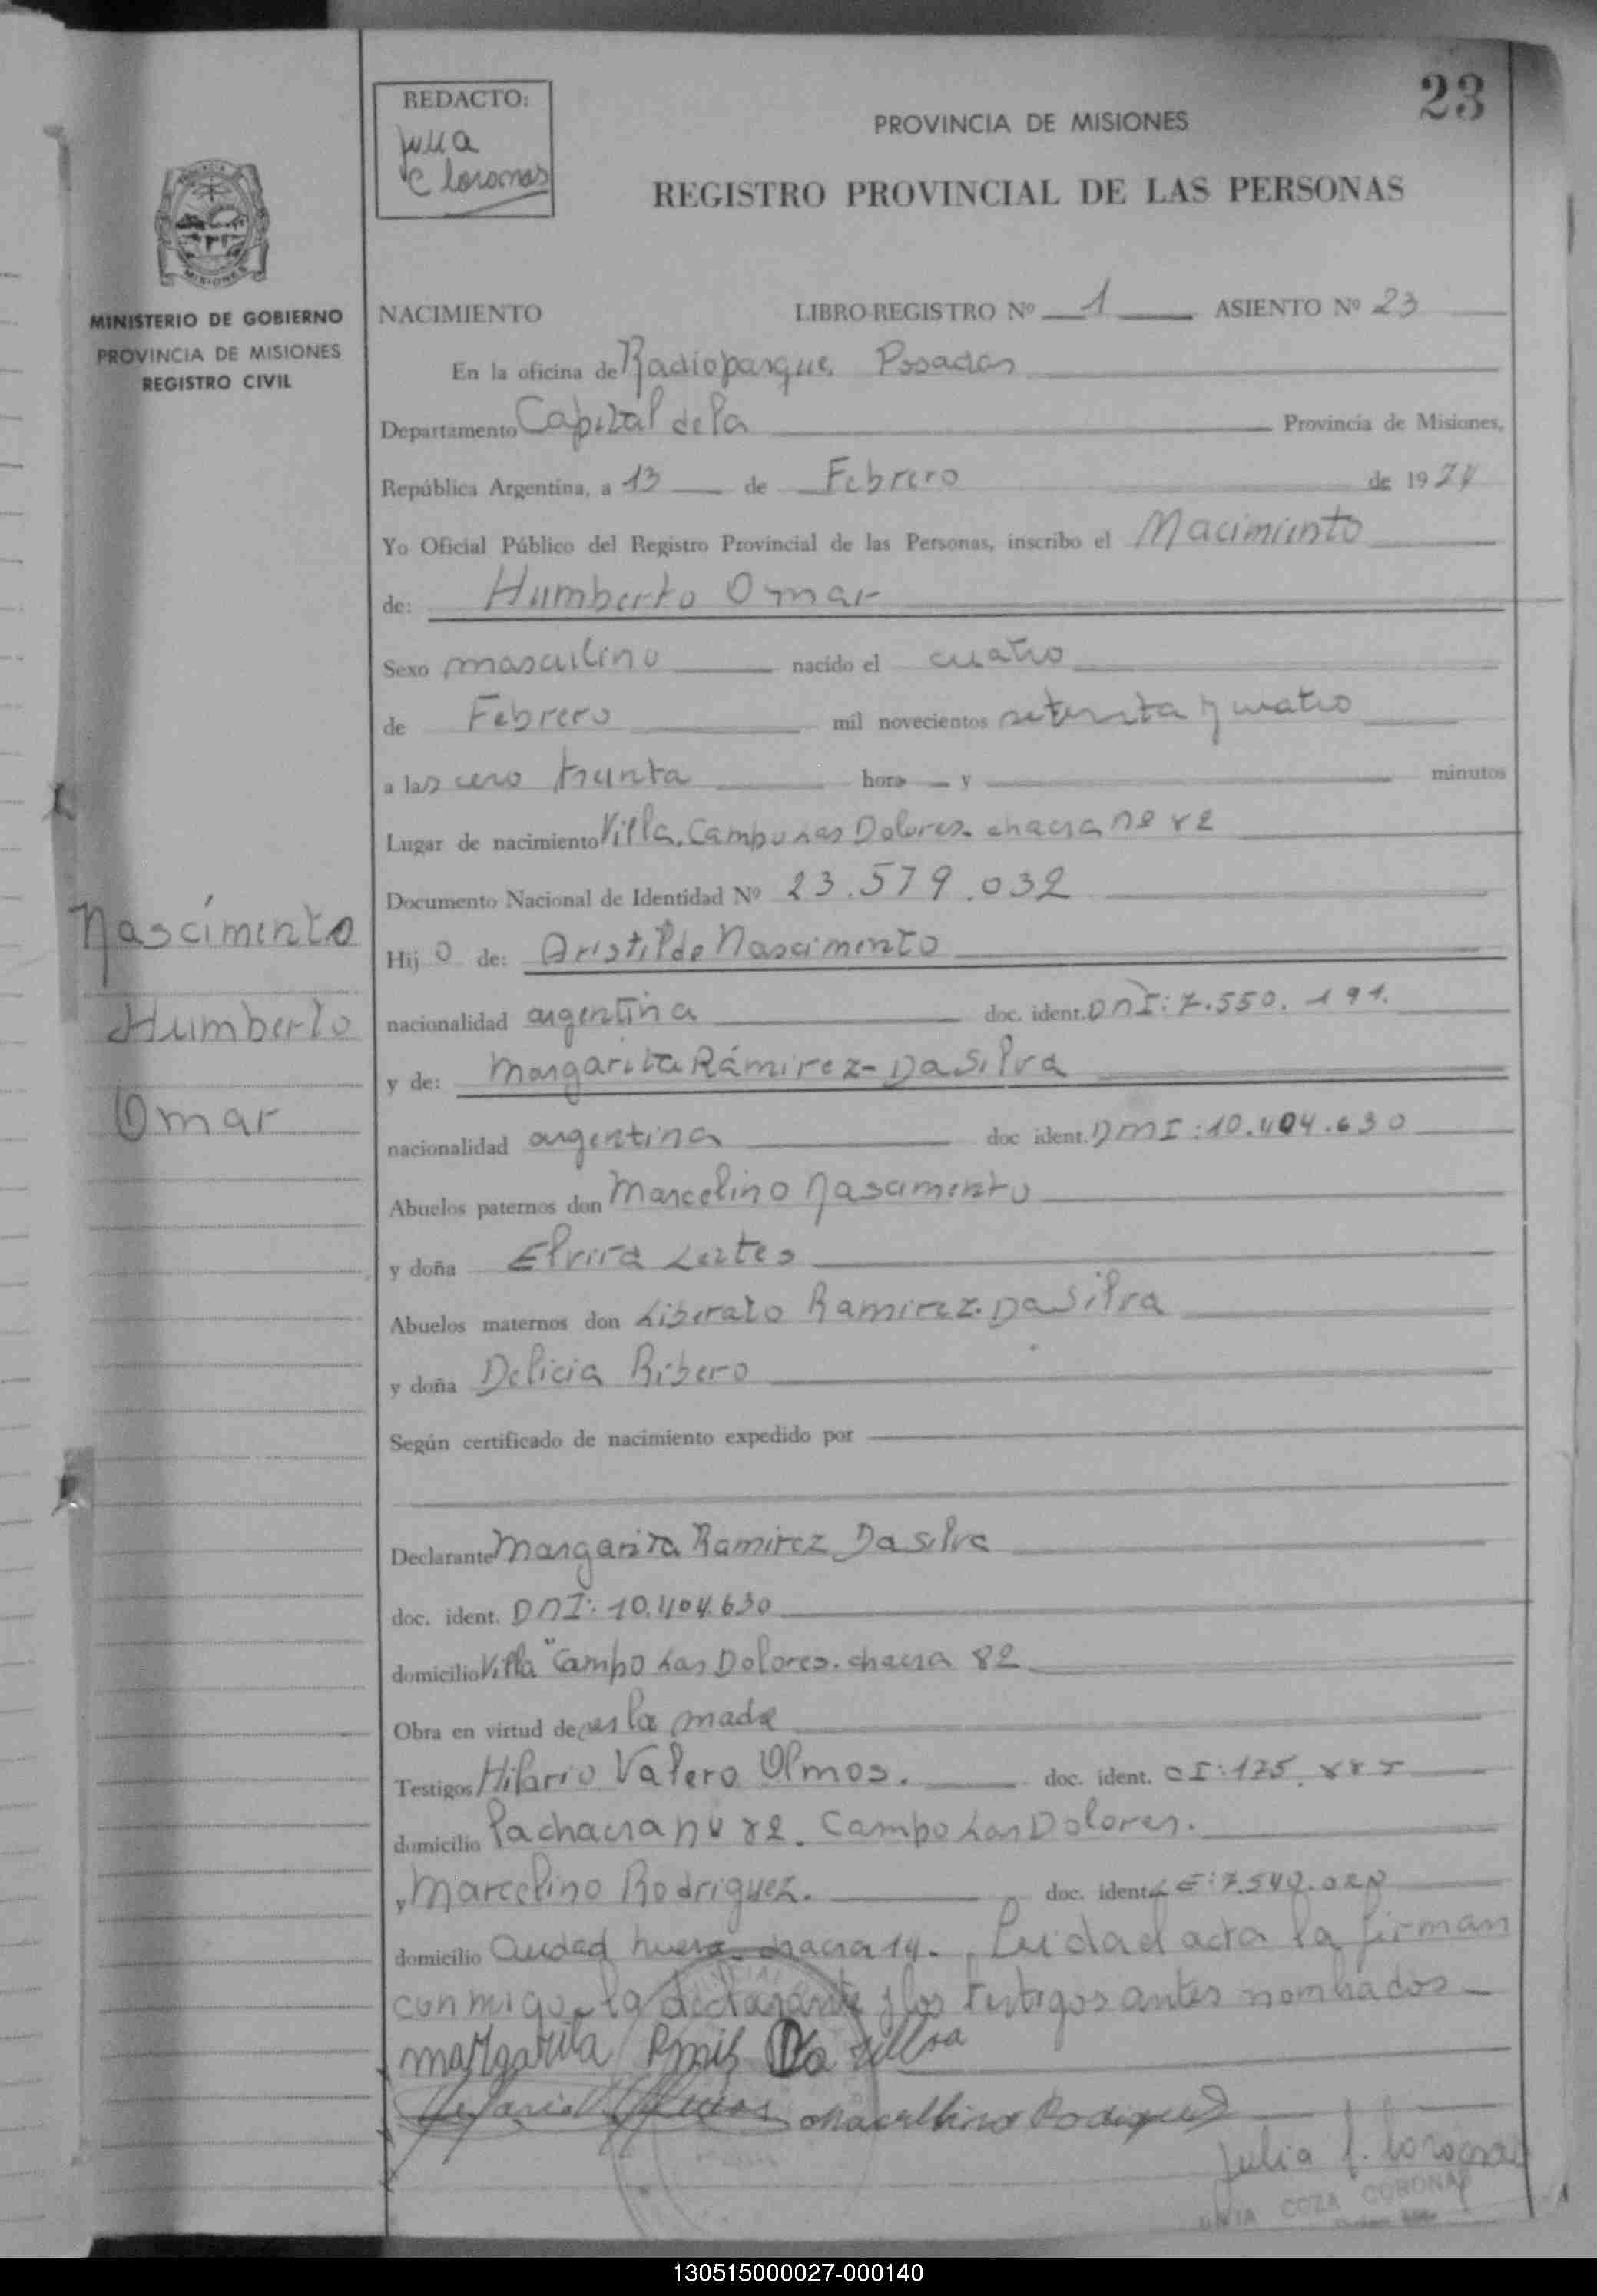 23
REDACTO:
Julia
C Coronas
PROVINCIA DE MISIONES
REGISTRO PROVINCIAL DE LAS PERSONAS
MISIONES
MINISTERIO DE GOBIERNO
PROVINCIA DE MISIONES
REGISTRO CIVIL
NACIMIENTO LIBRO-REGISTRO Nº 1 ASIENTO Nº 23
En la oficina de Radioparque Posadas
Departamento Capital de la Provincia de Misiones,
República Argentina, a 13 de Febrero de 1974
Yo Oficial Público del Registro Provincial de las Personas, inscribo el Nacimiento
de: Humberto Omar
Sexo masculino nacido el cuatro
de Febrero mil novecientos setenta y cuatro
a las cero treinta hora y minutos
Lugar de nacimiento Villa Campo Las Dolores chacra nº 82
Documento Nacional de Identidad Nº 23.579.032
Nascimento
Humberto
Omar
Hijo de: Aristilde Nascimento
nacionalidad argentina doc. ident. DNI: 7.550.191.
y de: Margarita Rámirez-Da Silva
nacionalidad argentina doc ident. DNI: 10.404.630
Abuelos paternos don Marcelino Nascimento
y doña Elvira Leites
Abuelos maternos don Liberato Ramirez. Da Silva
y doña Delicia Ribero
Según certificado de nacimiento expedido por
Declarante Margarita Ramirez Da Silva
doc. ident. DNI: 10.404.630
domicilio Villa "Campo Las Dolores. chacra 82
Obra en virtud de ser la madre
Testigos Hilario Valero Olmos. doc. ident. CI: 175.885
domicilio La chacra nº 82. Campo Las Dolores.
y Marcelino Rodriguez. doc. ident. LE: 7.540.020
domicilio Ciudad nueva chacra 14. Leida el acta la firman
conmigo la declarante y los testigos antes nombrados
margarita Rmis Da Silva
Marcelino Rodriguez
Julia J. Coronas
COZA CORONAS
130515000027-000140